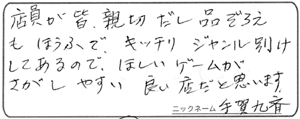 店員が皆、親切だし品ぞろえ
もほうふで、キッチリジャンル別け
してあるので、ほしいゲームが
さがしやすい良い店だと思います。
ニックネーム 手賀九斎